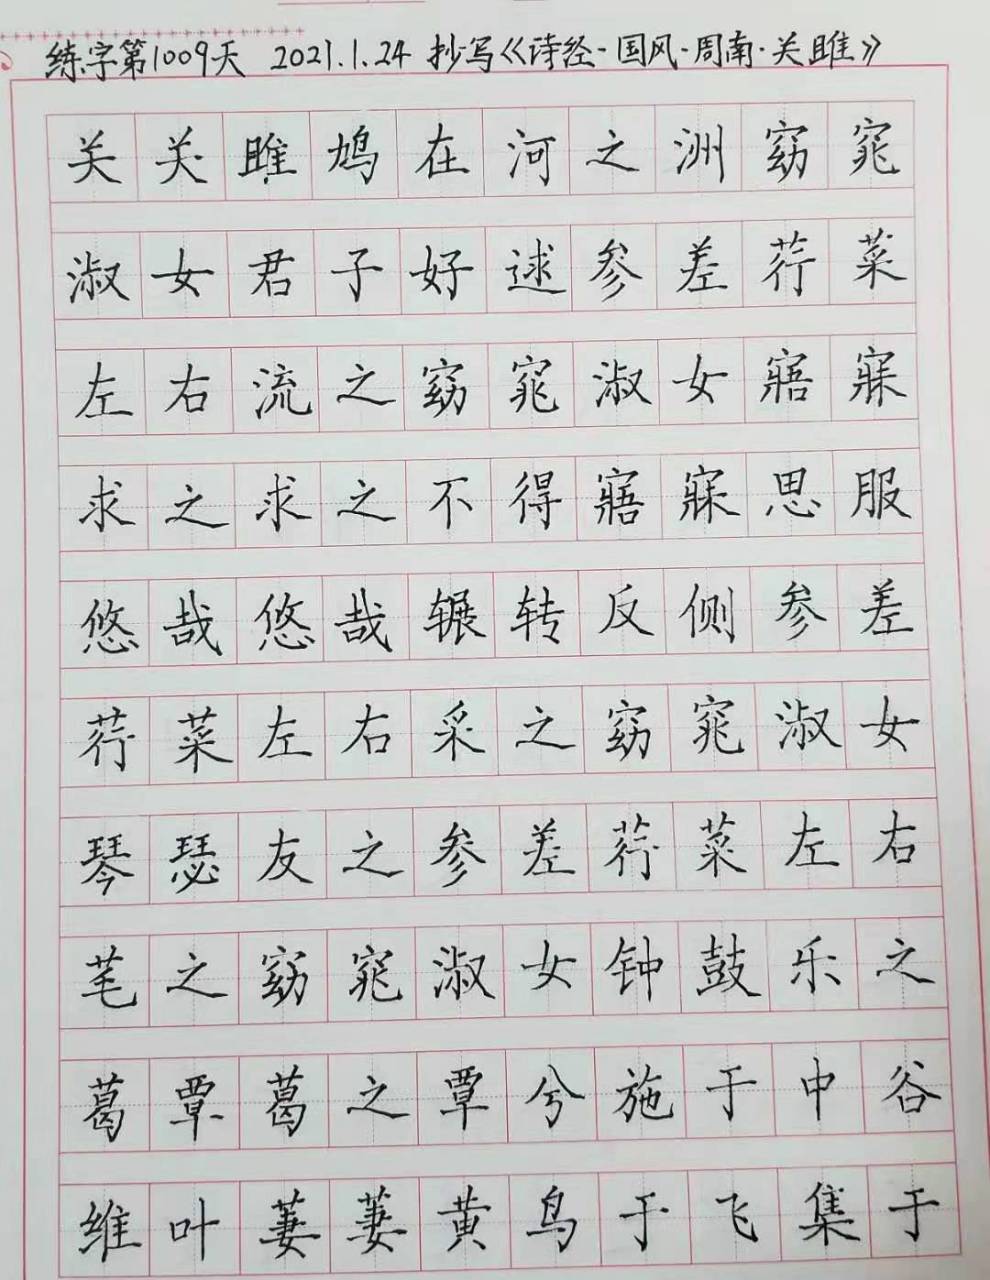 练字第1009天 2021.1.24 抄写《诗经·国风·周南·关雎》
关关雎鸠在河之洲窈窕
淑女君子好逑参差荇菜
左右流之窈窕淑女寤寐
求之求之不得寤寐思服
悠哉悠哉辗转反侧参差
荇菜左右采之窈窕淑女
琴瑟友之参差荇菜左右
芼之窈窕淑女钟鼓乐之
葛覃葛之覃兮施于中谷
维叶萋萋黄鸟于飞集于